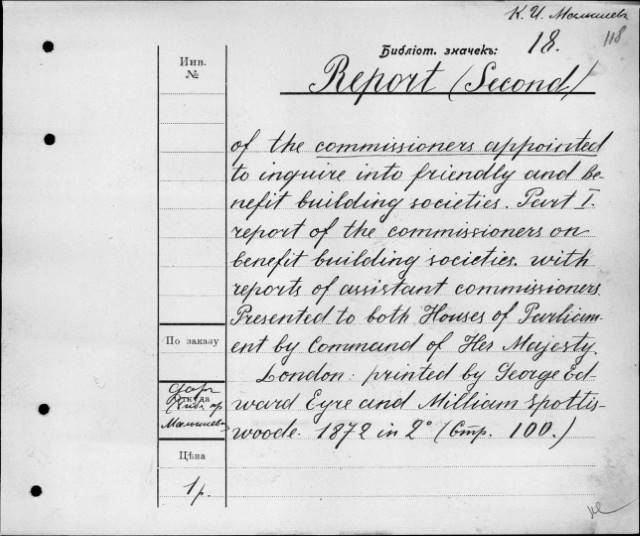 К. И. Малышев
118
Библіот. значекъ: 18.
Report (Second)
of the commissioners appointed
to inquire into friendly and be-
nefit building societies. Part I.
report of the commissioners on
benefit building societies. with
reports of assistant commissioners.
Presented to both Houses of Parliam-
ent by Command of Her Majesty.
London: printed by George Ed-
ward Eyre and Milliam Spottis-
woode. 1872 in 2° (Стр. 100.)
Инв.
№
По заказу
Откуда
Малышев
Цѣна
1 р.